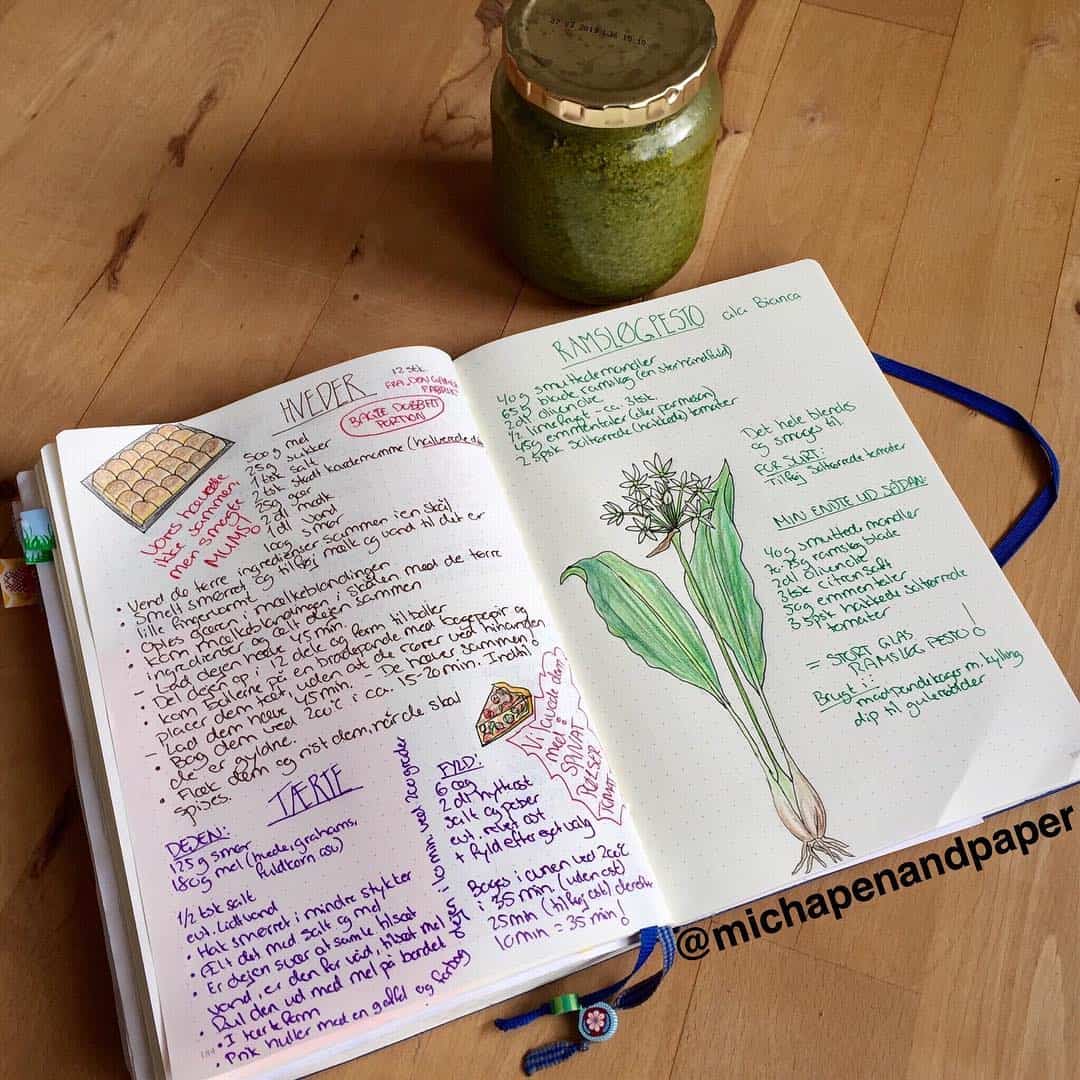 07 03 2019 L36 15:15
HVEDER
12 stk.
FRA "DEN GAMLE FABRIK"
BAGTE DOBBELT
PORTION
500g mel
25g sukker
1 tsk salt
2 tsk stødt kardemomme (halverede
25g gær
2 dl mælk
1 dl vand
100g smør
Vores hævede
ikke sammen,
men smagte
MUMS!
• Vend de tørre ingredienser sammen i en skål
• Smelt smørret og tilføj mælk og vand til det er
lille fingervarmt.
• Opløs gæren i mælkeblandingen
• Kom mælkeblandingen i skålen med de tørre
ingredienser og ælt dejen sammen
- Lad dejen hæve i 45 min.
- Del dejen op i 12 dele og form til boller
• Kom bollerne på en bradepande med bagepapir og
placer dem tæt, uden at de rører ved hinanden
- Lad dem hæve 45min. - De hæver sammen!
- Bag dem ved 200°C i ca. 15-20 min. Indtil
de er gyldne.
• Flæk dem og rist dem, når de skal
spises.
TÆRTE
DEJEN:
125g smør
180g mel (hvede, grahams,
fuldkorn osv)
1/2 tsk salt
evt. Lidt vand
• Hak smørret i mindre stykker
• Ælt det med salt og mel
• Er dejen svær at samle tilsæt
vand, er den for våd, tilsæt mel
• Rul den ud med mel på bordet
• I tærteform
• Prik huller med en gaffel og forbag
dejen i 10 min. ved 200 grader
FYLD:
6 æg
2 dl hytteost
salt og peber
evt. revet ost
+ fyld efter eget valg
Bages i ovnen ved 200°C
i 35 min. (uden ost)
25min (tilføj ost) derefter
10min = 35 min!
Vi lavede den
med:
SPINAT
PØLSER
TOMAT
184
RAMSLØGPESTO ala Bianca
40g smuttede mandler
65g blade ramsløg (en stor håndfuld)
2 dl olivenolie
1/2 limefrugt - ca. 3tsk
45g emmentaler (eller parmesan)
2 spsk soltørrede (hakkede) tomater
Det hele blendes
og smages til.
FOR SURT:
Tilføj soltørrede tomater
MIN ENDTE UD SÅDAN:
40g smuttede mandler
70-75g ramsløg blade
2dl olivenolie
3tsk citron saft
50g emmentaler
3 spsk hakkede soltørrede
tomater
= STORT GLAS
RAMSLØG PESTO!
Brugt i: madpandekager m. kylling
dip til gulerødder
@michapenandpaper